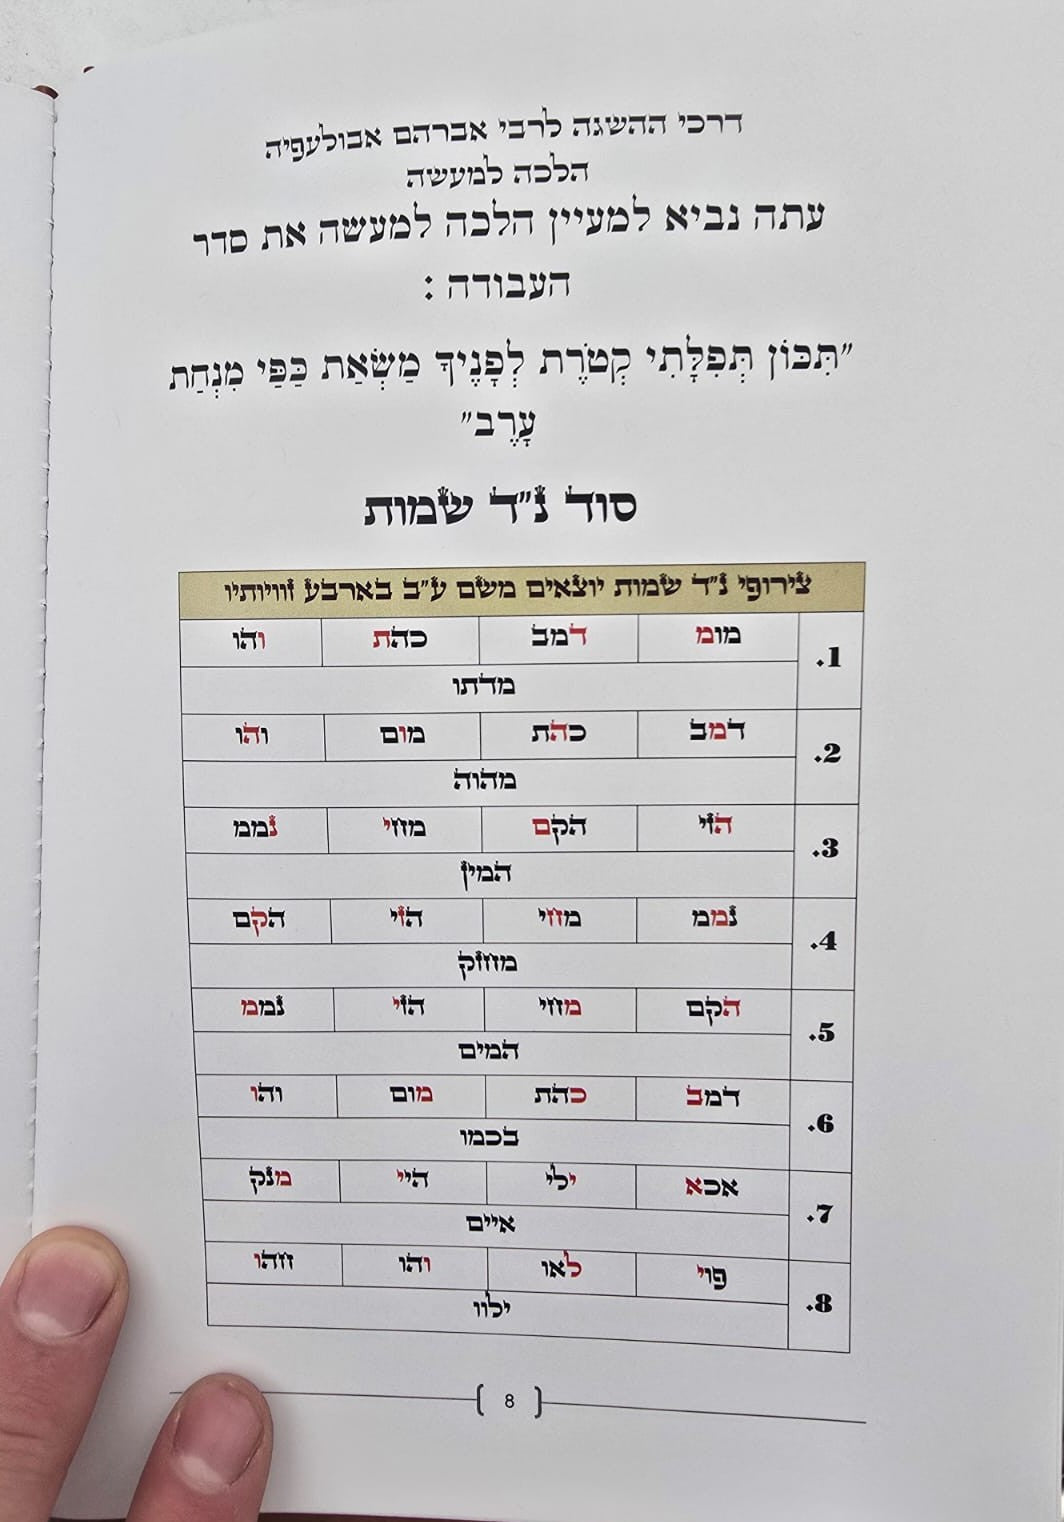 דרכי ההשגה לרבי אברהם אבולעפיה
הלכה למעשה
עתה נביא למעיין הלכה למעשה את סדר
העבודה :
״תִּכּוֹן תְּפִלָּתִי קְטֹרֶת לְפָנֶיךָ מַשְׂאַת כַּפַּי מִנְחַת
עָרֶב״
סוד נ״ד שמות
צירופי נ״ד שמות יוצאים משם ע״ב בארבע זוויותיו
1. מומ דמב כהת והו
מדתו
2. דמב כהת מום והו
מהוה
3. הזי הקם מחי נממ
המין
4. נממ מחי הזי הקם
מחזק
5. הקם מחי הזי נממ
המים
6. דמב כהת מום והו
בכמו
7. אכא ילי היי מנק
איים
8. פוי לאו והו חהו
ילוו
8